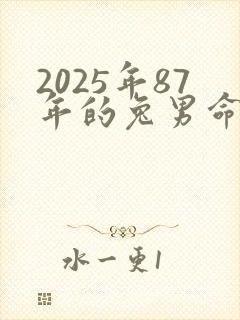 2025年87
年的兔男命
水一更1